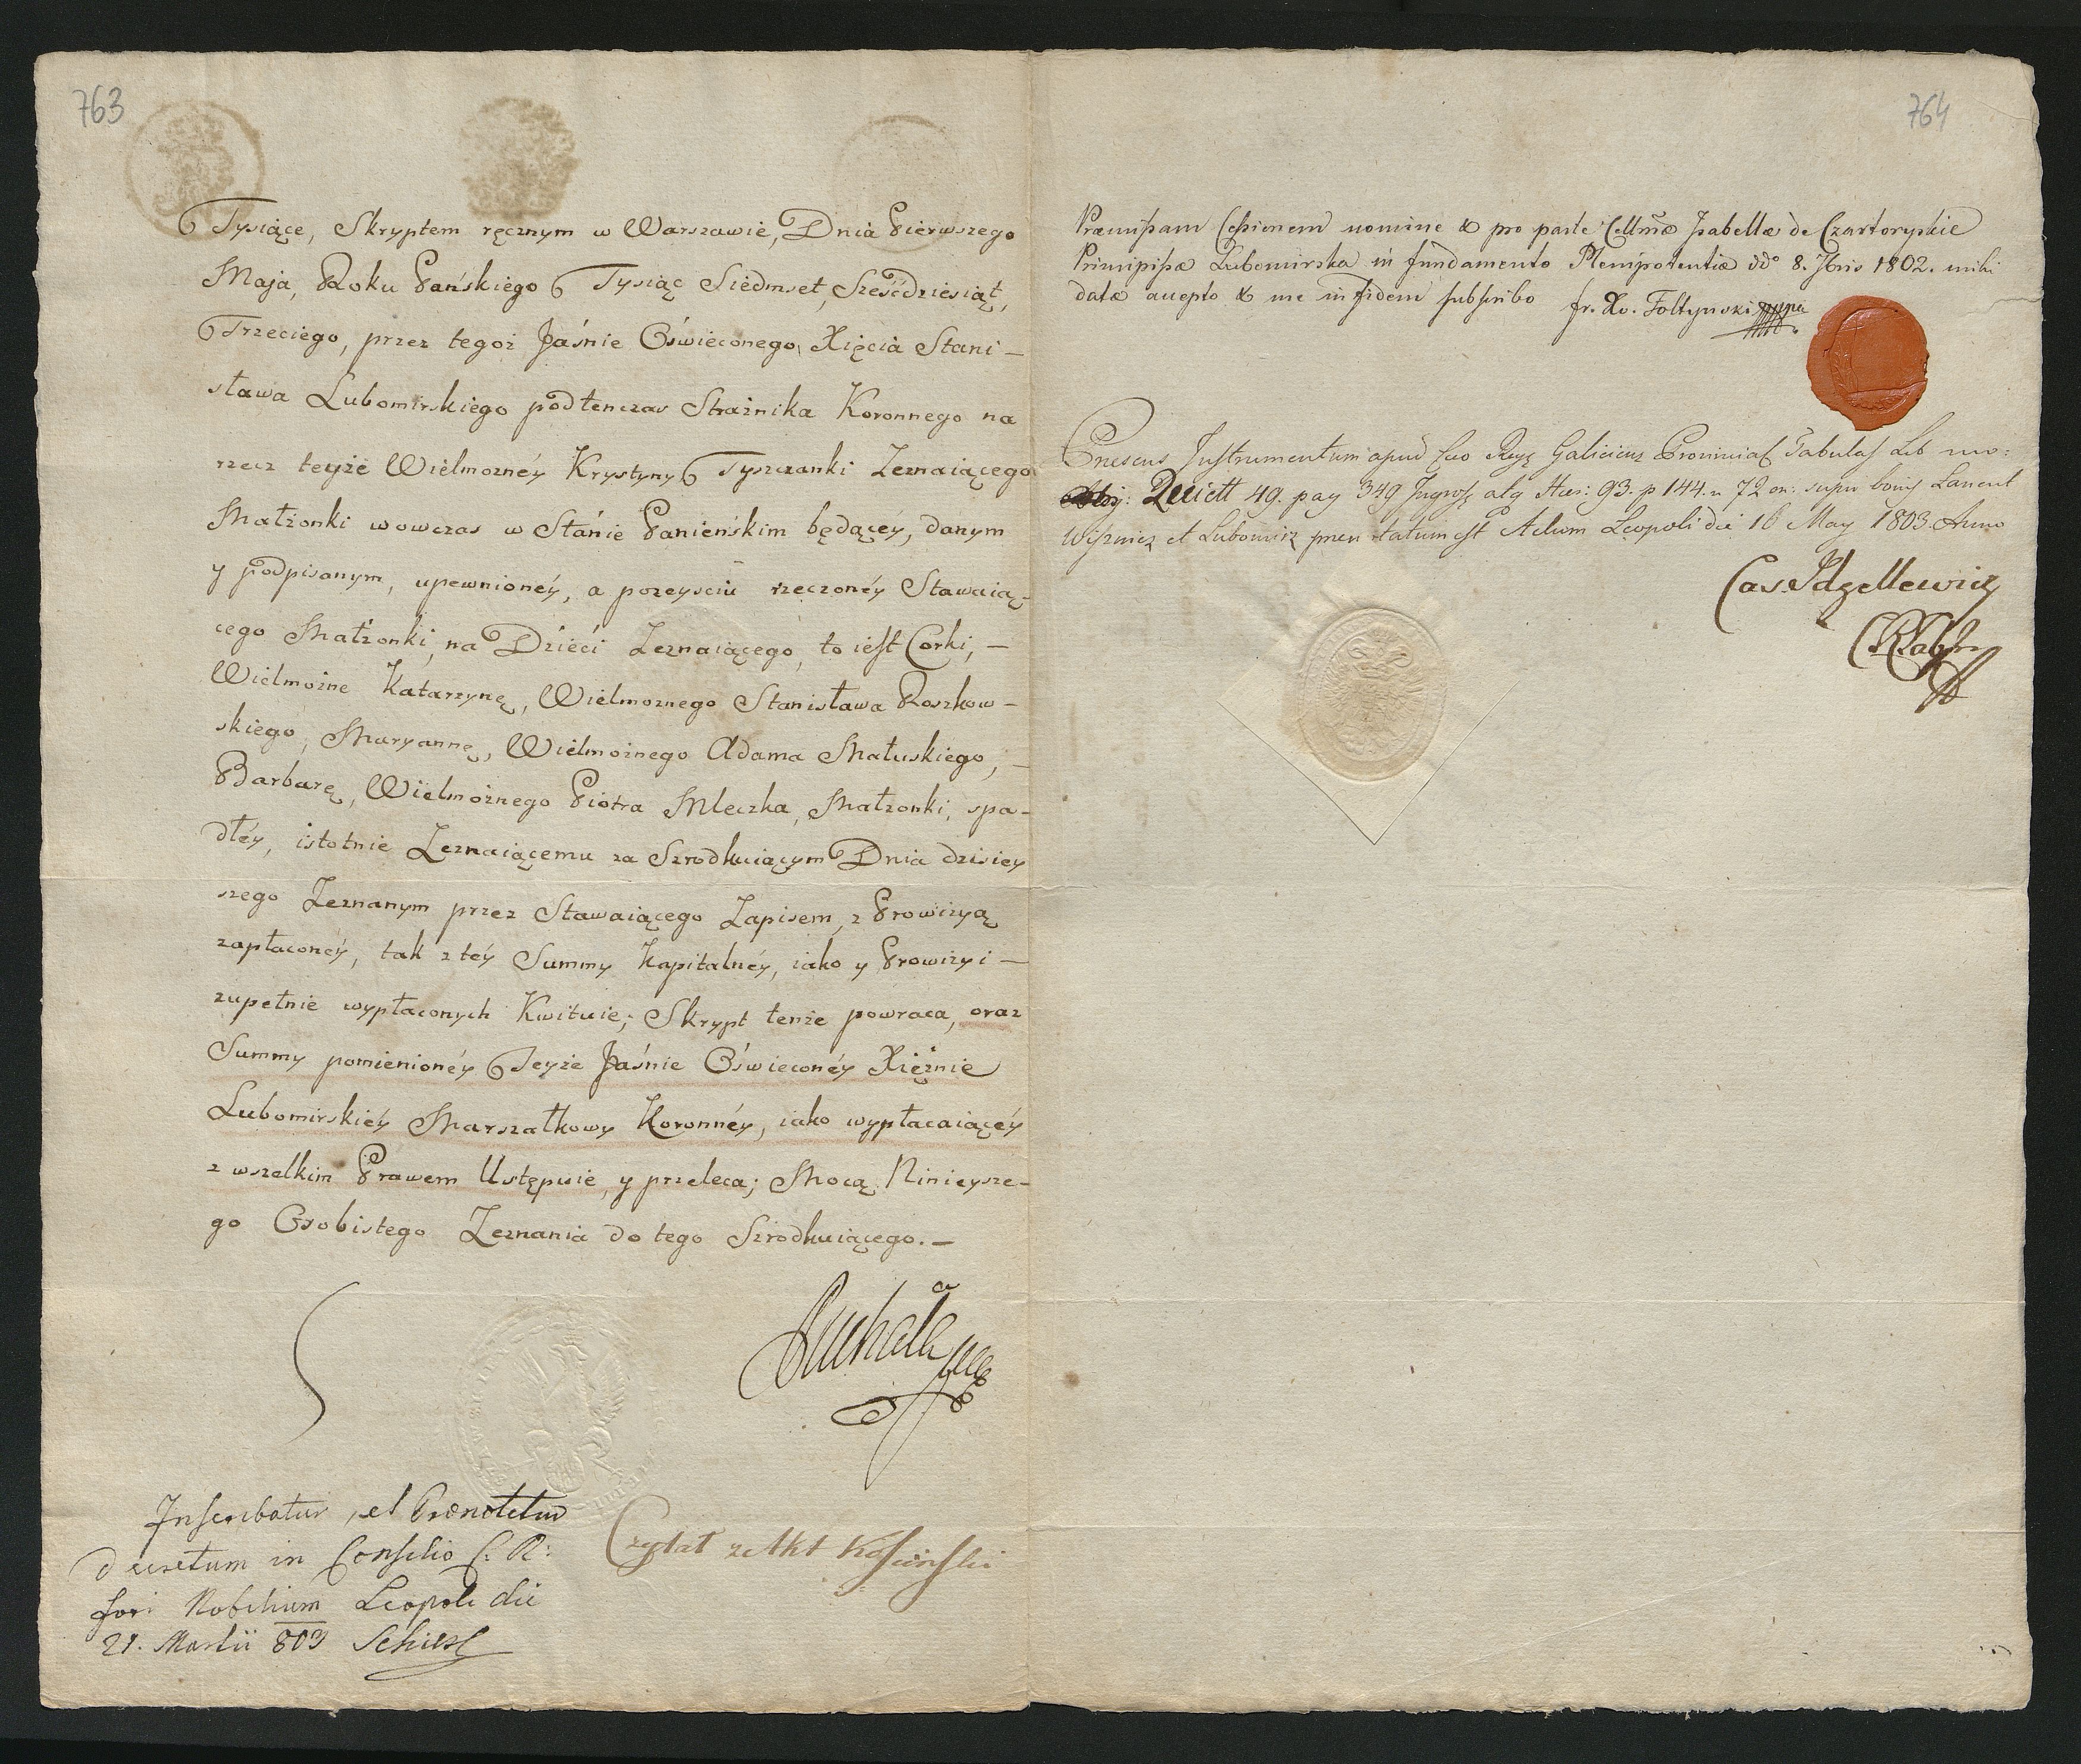 763
Tysiące, Skryptem ręcznym w Warszawie, Dnia Pierwszego
Maja, Roku Pańskiego Tysiąc Siedmset, Sześćdziesiąt,
Trzeciego, przez tegoż Jaśnie Oświeconego Xięcia Stani-
sława Lubomirskiego podtenczas Strażnika Koronnego na
rzecz teyże Wielmożnéy Krystyny Tyszczanki Zeznaiącego
Małżonki wowczas w Stanie Panieńskim będącéy, danym
y podpisanym, upewnionéy, a pozeysciu rzeczonéy Stawaią-
cego Małżonki, na Dzieci Zeznaiącego, to iest Corki, —
Wielmożne Katarzynę, Wielmożnego Stanisława Roszkow-
skiego, Maryannę, Wielmożnego Adama Małuskiego, —
Barbarę, Wielmożnego Piotra Mleczka, Małżonki, spa-
dłéy, istotnie Zeznaiącemu za Szrodkuiącym Dnia dzisiey
szego Zeznanym przez Stawaiącego Zapisem, z Prowizyą
zapłaconéy, tak z téy Summy Kapitalnéy, iako y Prowizyi —
zupełnie wypłaconych Kwituie; Skrypt tenże powraca, oraz
Summy pomienionéy Teyże Jaśnie Oświeconéy Xiężnie
Lubomirskiéy Marszałkowy Koronnéy, iako wypłacaiącéy
z wszelkim Prawem Ustępuie, y przeleca; Mocą Ninieysze-
go Osobistego Zeznania do tego Szrodkuiącego. —
Inscribatur, et Prænotetur
decretum in Consilio C. R:
fori Nobilium Leopoli die
21. Martii 803
Czytał z Akt
764
Præmissam Cessionem nomine & pro parte Cellmæ Isabellæ de Czartoryskie
Principissæ Lubomirska in fundamento Plenipotentiæ ddo 8. Xbris 1802. mihi
datæ accepto & me in fidem subscribo fr. Xv. Foltynski mpp
Præsens Instrumentum apud Cæo Reg Galicicas Provincial Tabulas Lib no:
Quiett 49. pag 349 Ingross atq Hær: 93. p 144. n 72 on: super bonis Lancut
Wisznicz et Lubomirz præn statum est Actum Leopoli die 16 May 1803. Anno